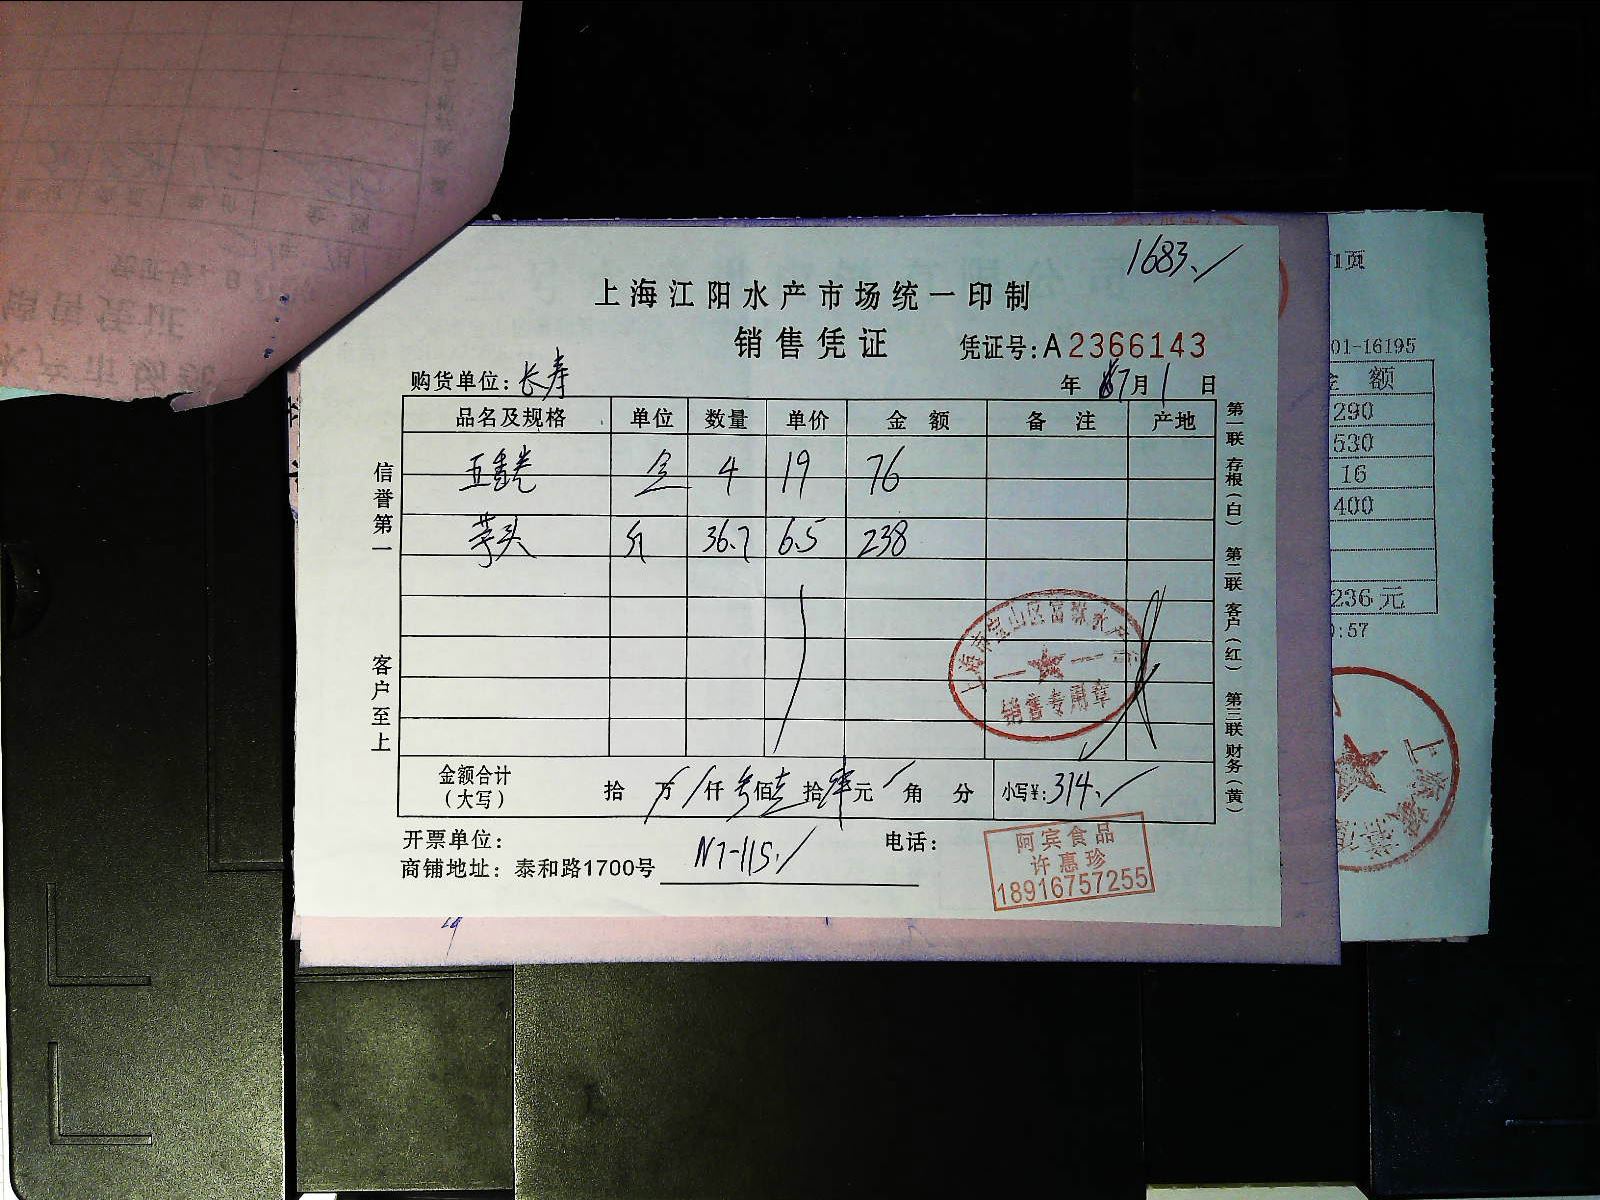 1683./
上海江阳水产市场统一印制
销售凭证 凭证号:A2366143
购货单位:长寿 年 7月1日
品名及规格 单位 数量 单价 金额 备注 产地
4 19 76
芋头 斤 36.7 6.5 238
信誉第一
客户至上
第一联 存根(白) 第二联 客户(红) 第三联 财务(黄)
销售专用章
金额合计(大写) 拾 万 仟 佰 拾 元 角 分 小写¥:314./
开票单位: 电话:
商铺地址:泰和路1700号 N7-115./
阿宾食品
许惠珍
18916757255
1页
01-16195
金 额
290
530
16
400
236元
:57